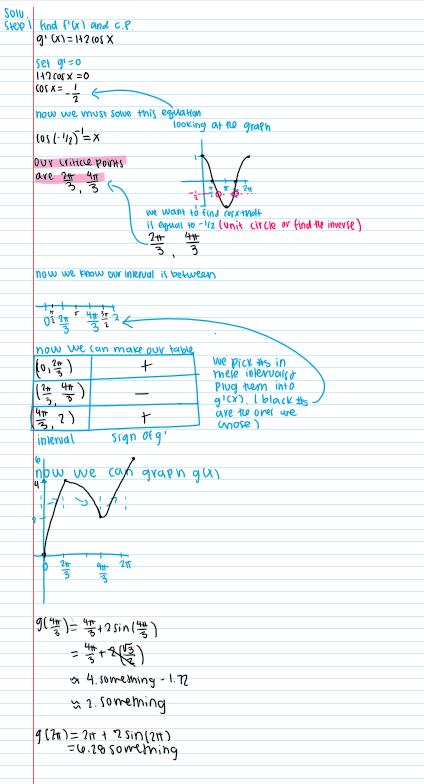 Solu.
Step 1 find f'(x) and c.p.
g'(x)=1+2cosx
set g'=0
1+2cosx=0
cosx=-1/2
now we must solve this equation
looking at the graph
cos(-1/2)^-1=x
our critical points
are 2π/3, 4π/3
1
-1/2
-1
π/2 π 2π
we want to find cosx that
is equal to -1/2 (unit circle or find the inverse)
2π/3, 4π/3
now we know our interval is between
0 π/2 2π/3 π 4π/3 3π/2 2
now we can make our table
(0, 2π/3) +
(2π/3, 4π/3) −
(4π/3, 2) +
interval sign of g'
we pick #s in
these intervals &
plug them into
g'(x). (black #s
are the ones we
chose)
6
now we can graph g(x)
4
2
0 2π/3 4π/3 2π
g(4π/3)= 4π/3+2sin(4π/3)
= 4π/3+2(√3/2)
≈ 4.something -1.72
≈ 2.something
g(2π)=2π + 2sin(2π)
=6.28 something